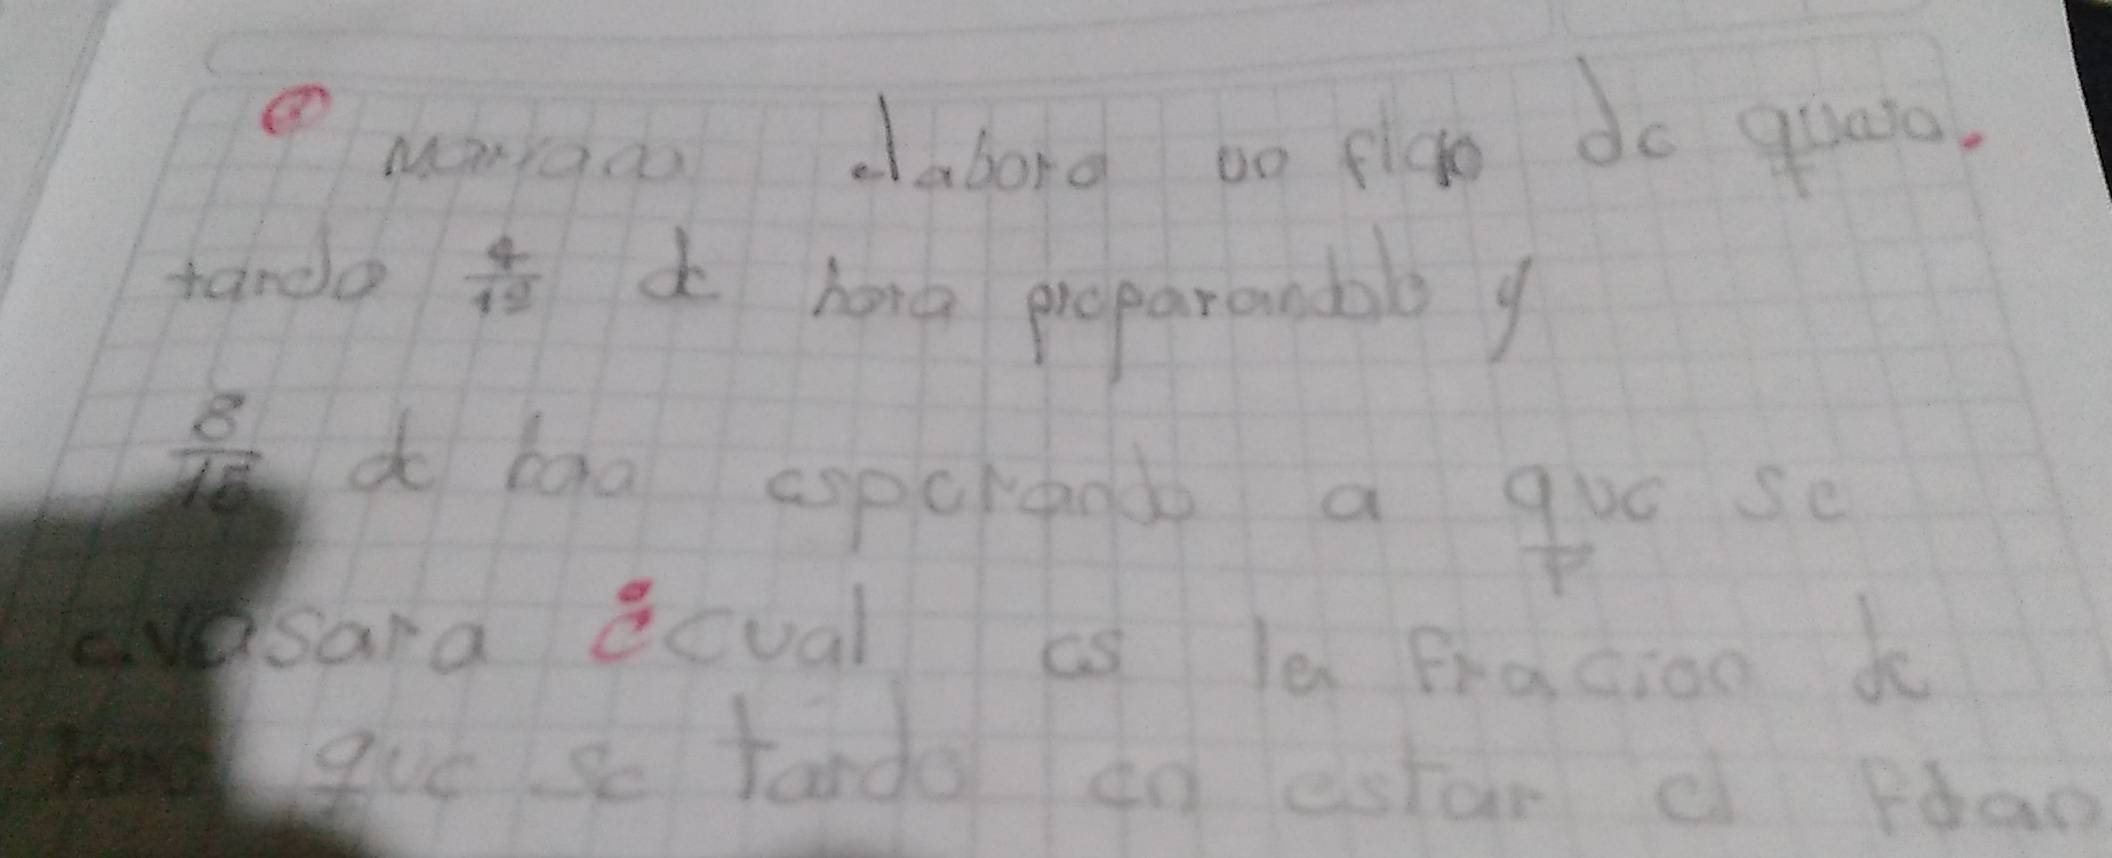 elaboro un flan de queso.
tardo 4/12 de hora preparandolo y
8/15 de hora esperando a que se
envasara ¿cual es la fracion de
hora que se tardo en estar el Fdan